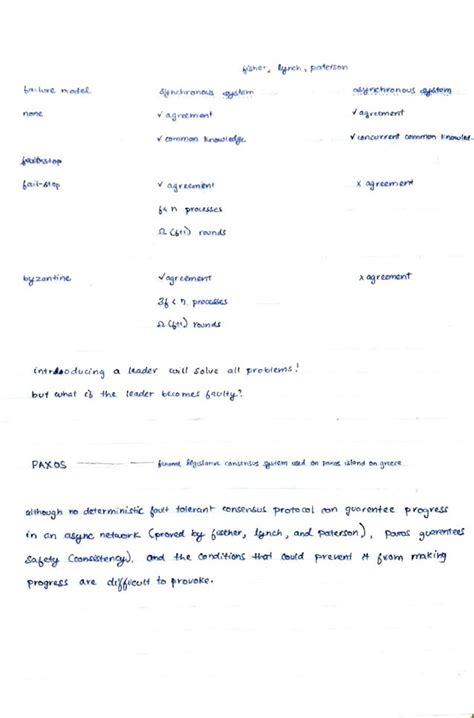 fisher, lynch, paterson
failure model synchronous system asynchronous system
none ✓ agreement ✓ agreement
✓ common knowledge ✓ concurrent common knowle
fail-stop
fail-stop ✓ agreement x agreement
f < n processes
Ω (f+1) rounds
byzantine ✓ agreement x agreement
3f < n processes
Ω (f+1) rounds
introducing a leader will solve all problems!
but what if the leader becomes faulty?
PAXOS — legislative consensus system used on paros island on greece
although no deterministic fault tolerant consensus protocol can guarentee progress
in an async network (proved by fischer, lynch, and paterson), paxos guarentees
safety (consistency), and the conditions that could prevent it from making
progress are difficult to provoke.